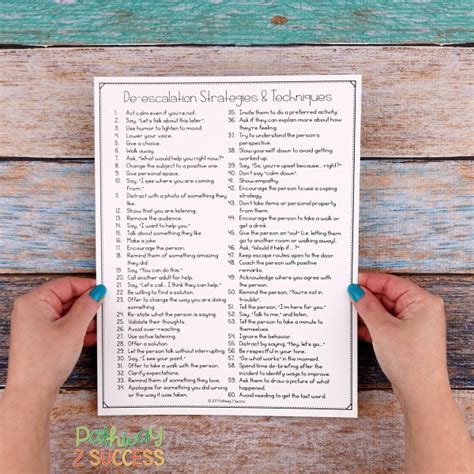 De-escalation Strategies & Techniques
1. Act calm even if you're not.
2. Say, "Let's talk about this later."
3. Use humor to lighten to mood.
4. Lower your voice.
5. Give a choice.
6. Walk away.
7. Ask, "What would help you right now?"
8. Change the subject to a positive one.
9. Give personal space.
10. Say, "I see where you are coming
from."
11. Distract with a photo of something they
like.
12. Show that you are listening.
13. Remove the audience.
14. Say, "I want to help you."
15. Talk about something they like.
16. Make a joke.
17. Encourage the person.
18. Remind them of something amazing
they did.
19. Say, "You can do this."
20. Call another adult for help.
21. Say, "Let's call...I think they can help."
22. Be willing to find a solution.
23. Offer to change the way you are doing
something.
24. Re-state what the person is saying.
25. Validate their thoughts.
26. Avoid over-reacting.
27. Use active listening.
28. Offer a solution.
29. Let the person talk without interrupting.
30. Say, "I see your point."
31. Offer to take a walk with the person.
32. Clarify expectations.
33. Remind them of something they love.
34. Apologize for something you did wrong
or the way it was taken.
35. Invite them to do a preferred activity.
36. Ask if they can explain more about how
they're feeling.
37. Try to understand the person's
perspective.
38. Slow yourself down to avoid getting
worked up.
39. Say, "So, you're upset because...right?"
40. Don't say "calm down".
41. Show empathy.
42. Encourage the person to use a coping
strategy.
43. Don't take items or personal property from
them.
44. Encourage the person to take a walk or
get a drink.
45. Give the person an "out" (i.e. letting them
go to another room or walking away).
46. Ask, "Would it help if...?"
47. Keep escape routes open to the door.
48. Coach the person with positive
remarks.
49. Acknowledge where you agree with
the person.
50. Remind the person, "You're not in
trouble."
51. Tell the person, "I'm here for you."
52. Say, "Talk to me," and listen.
53. Tell the person to take a minute to
themselves.
54. Ignore the behavior.
55. Distract by saying, "Hey, let's go..."
56. Be respectful in your tone.
57. "Do what works" in the moment.
58. Spend time de-briefing after the
incident to identify ways to improve.
59. Ask them to draw a picture of what
happened.
60. Avoid needing to get the last word.
Pathway
2 SUCCESS